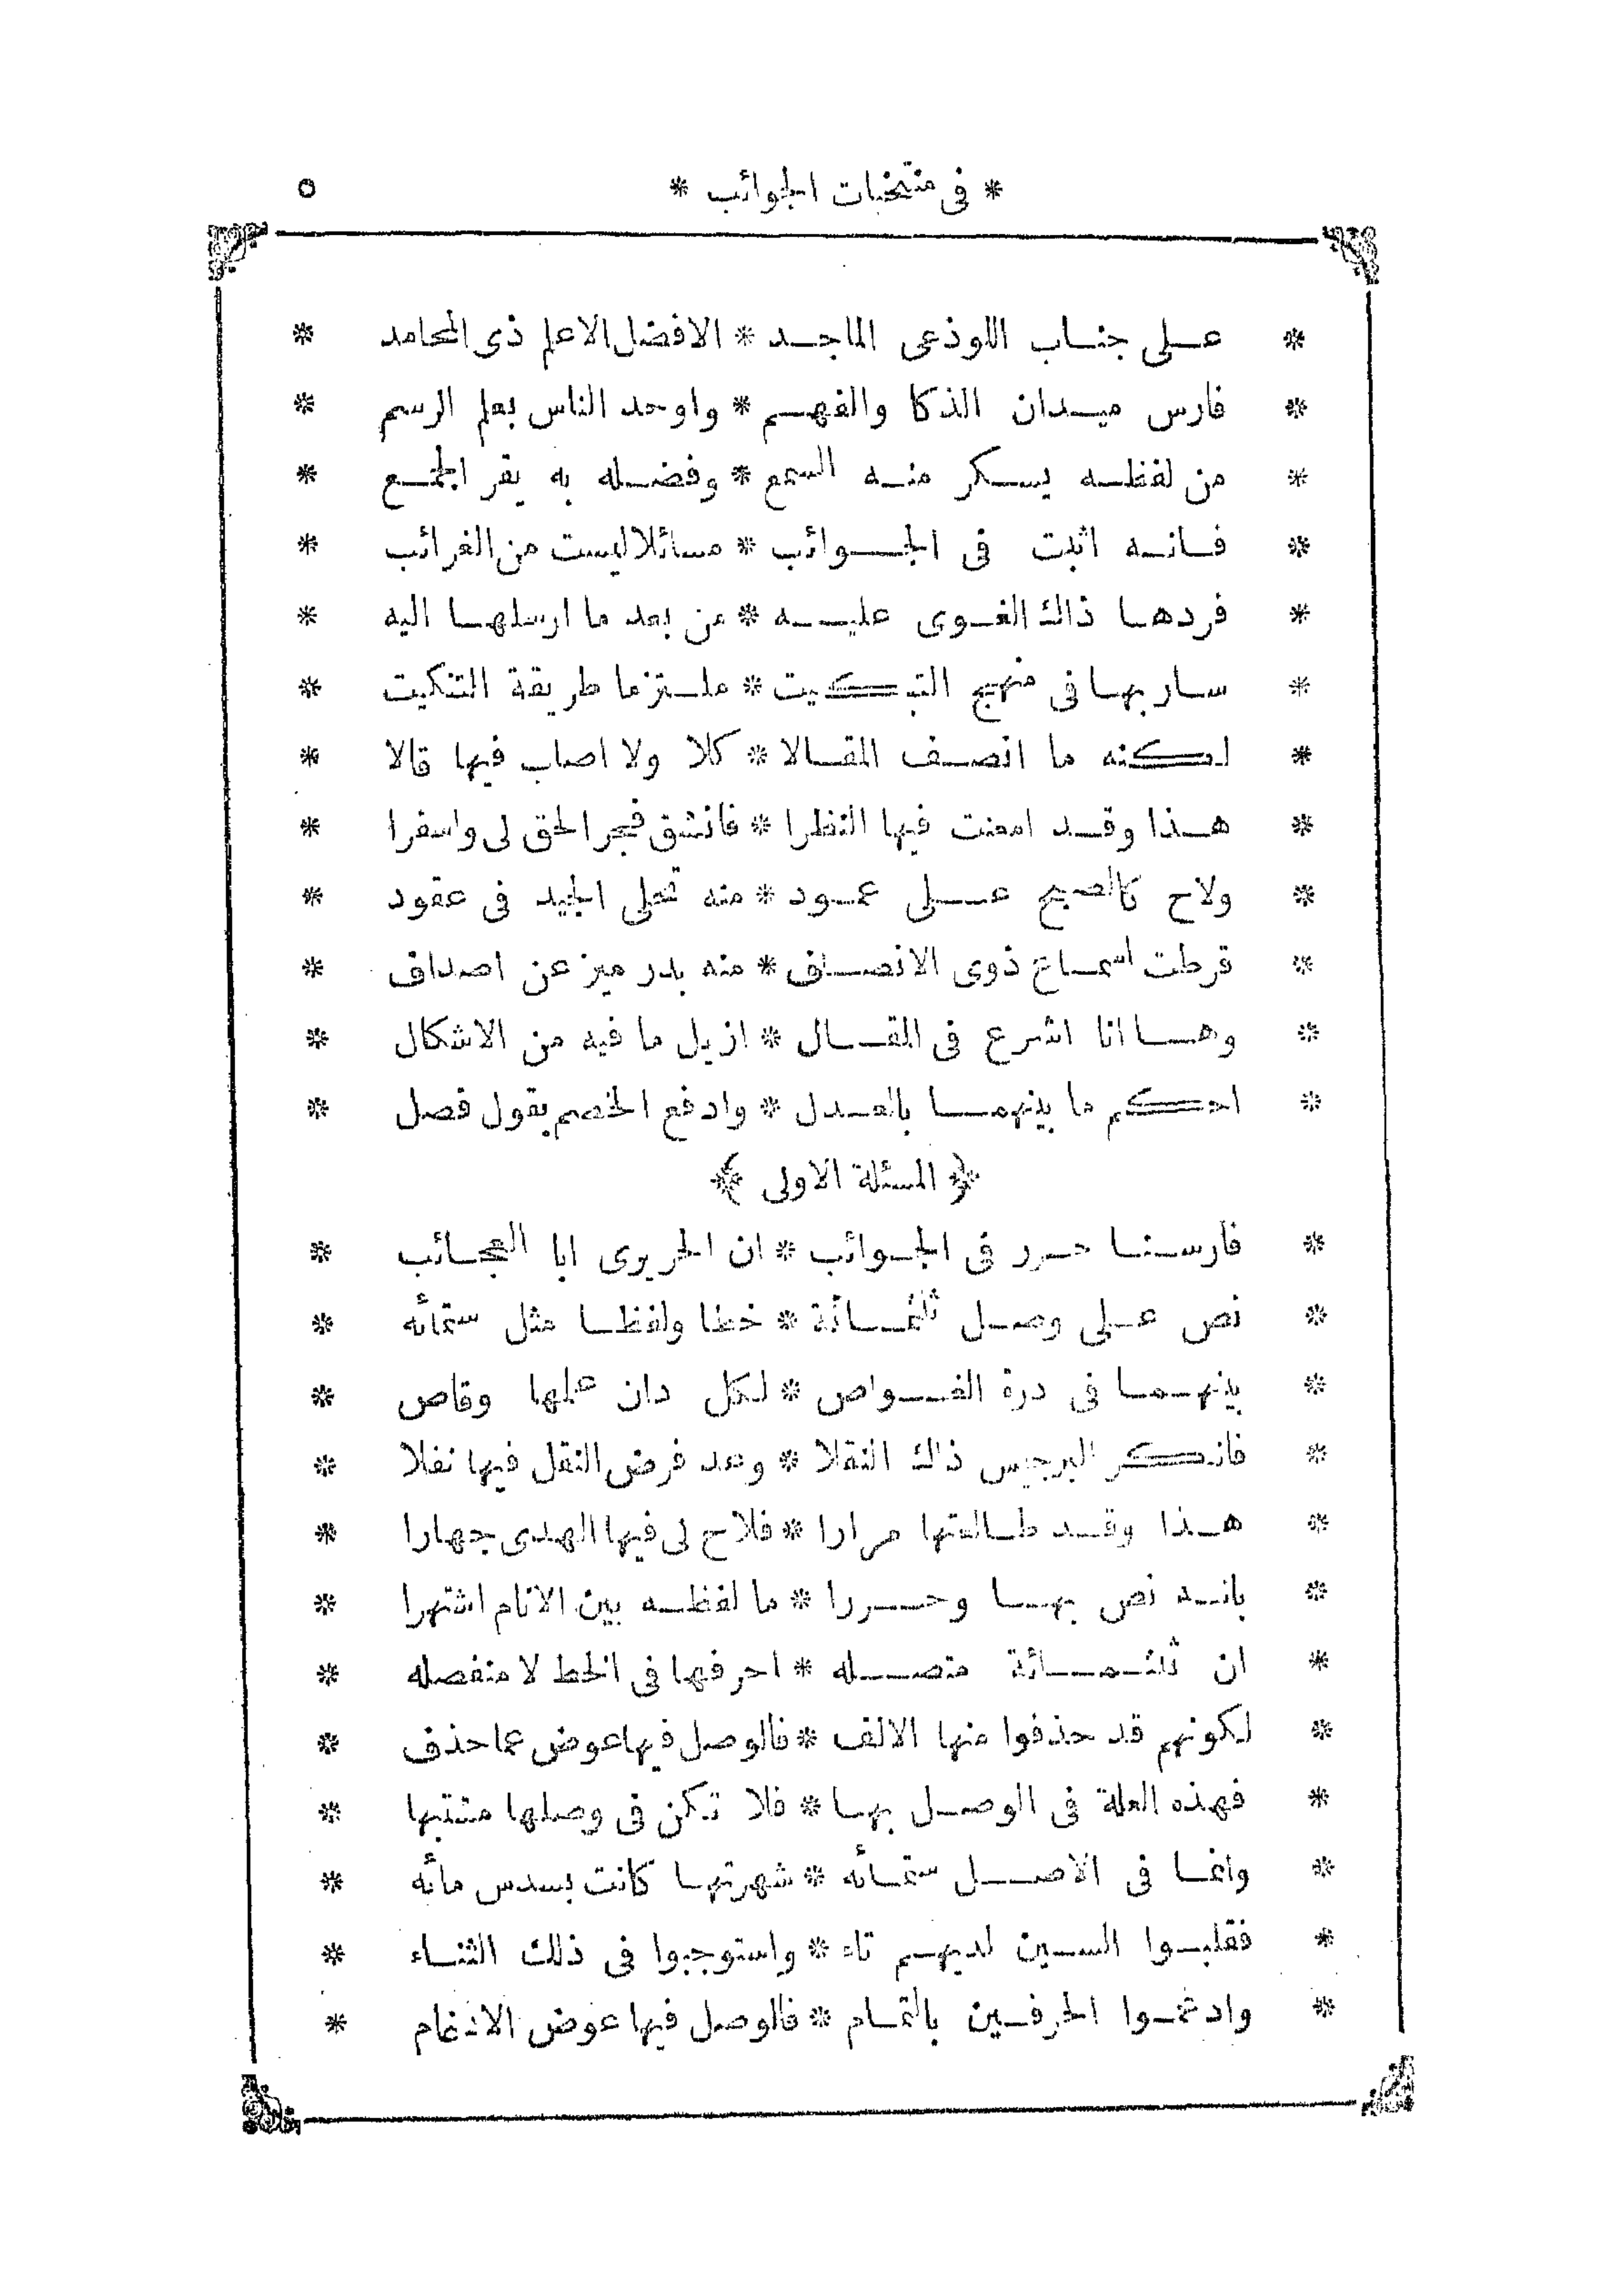 * في منتخبات الجوائب * ٥
* على جناب اللوذعى الماجد * الافضل الاعلم ذى المحامد *
* فارس ميدان الذكا والفهم * واوحد الناس بعلم الرسم *
* من لفظه يسكر منه السمع * وفضله به يقر الجمع *
* فانه اثبت فى الجوائب * مسائلا ليست من الغرائب *
* فردها ذاك الغوى عليه * من بعد ما ارسلها اليه *
* سار بها فى منهج التبكيت * ملتزما طريقة التنكيت *
* لكنه ما انصف المقالا * كلا ولا اصاب فيها قالا *
* هذا وقد امعنت فيها النظرا * فانشق فجر الحق لى واسفرا *
* ولاح كالصبح على عمود * منه تحلى الجيد فى عقود *
* قرطت اسماع ذوى الانصاف * منه بدر ميز عن اصداف *
* وها انا اشرع فى المقال * ازيل ما فيه من الاشكال *
* احكم ما بينهما بالعدل * وادفع الخصم بقول فصل *
﴿ المسئلة الاولى ﴾
* فارسنا حرر فى الجوائب * ان الحريرى ابا العجائب *
* نص على وصل ثلثمائة * خطا ولفظا مثل ستمائه *
* بينهما فى درة الغواص * لكل دان علمها وقاص *
* فانكر البرجيس ذاك النقلا * وعد فرض النقل فيها نفلا *
* هذا وقد طالعتها مرارا * فلاح لى فيها الهدى جهارا *
* بانه نص بها وحررا * ما لفظه بين الانام اشتهرا *
* ان ثلثمائة متصله * احرفها فى الخط لا منفصله *
* لكونهم قد حذفوا منها الالف * فالوصل فيها عوض عما حذف *
* فهذه العلة فى الوصل بها * فلا تكن فى وصلها مشتبها *
* وانما فى الاصل ستمائه * شهرتها كانت بسدس مائه *
* فقلبوا السين لديهم تاء * واستوجبوا فى ذلك الثناء *
* وادغموا الحرفين بالتمام * فالوصل فيها عوض الادغام *